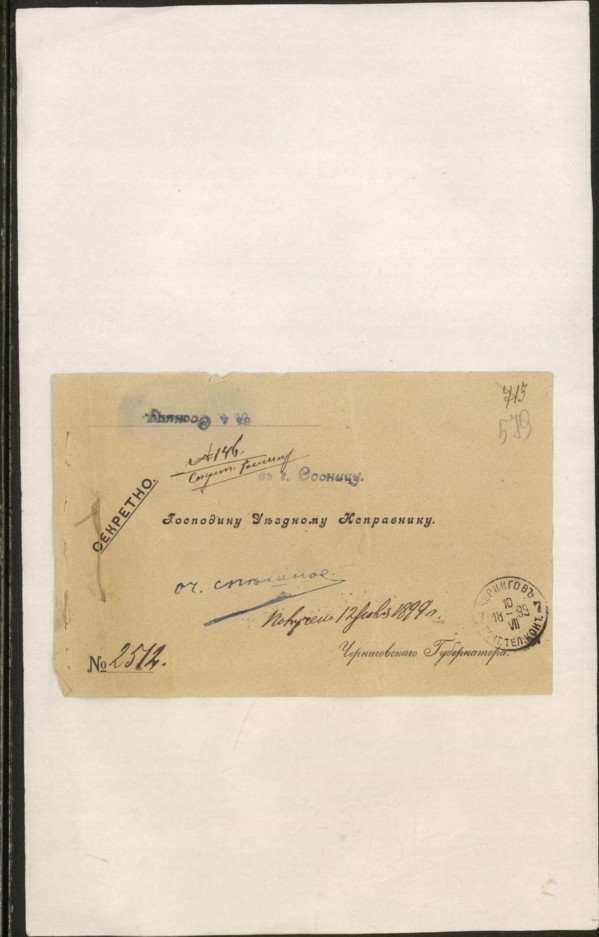 713
579
въ г. Сосницу.
№ 146.
Секрет.
въ г. Сосницу.
СЕКРЕТНО.
Господину Уѣздному Исправнику.
оч. спѣшное.
Получено 12 Июля 1899 г.
ЧЕРНИГОВЪ
10
18-99
VII
ПОЧТ.ТЕЛ.КОНТ.
№ 2512.
Черниговскаго Губернатора.